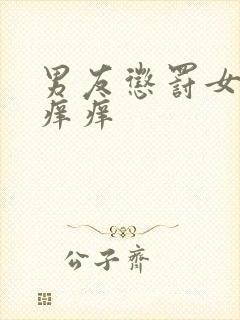 男友惩罚女
痒痒
公子齊